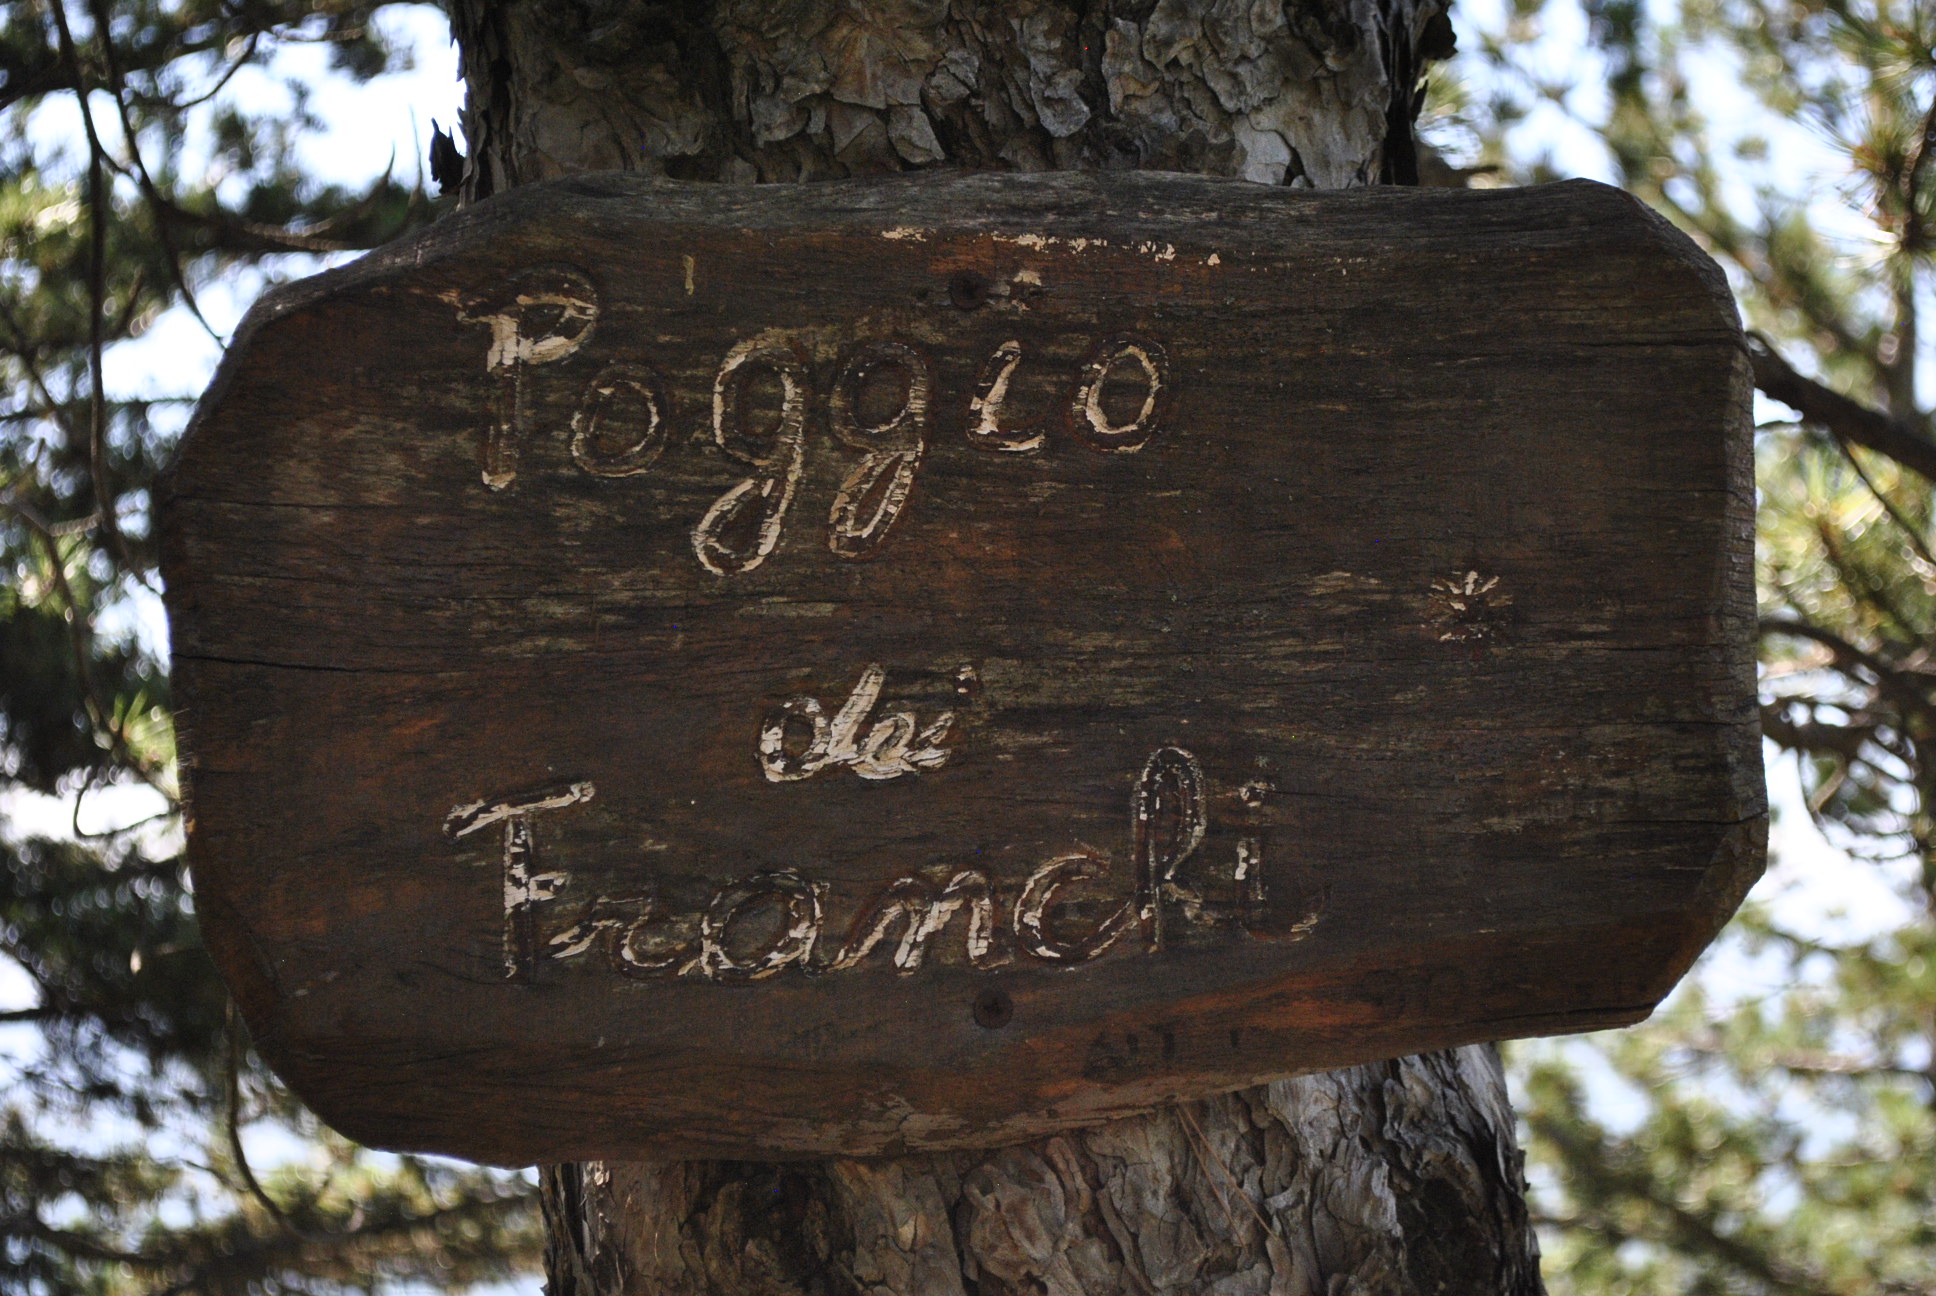 Poggio
dei
Franchi